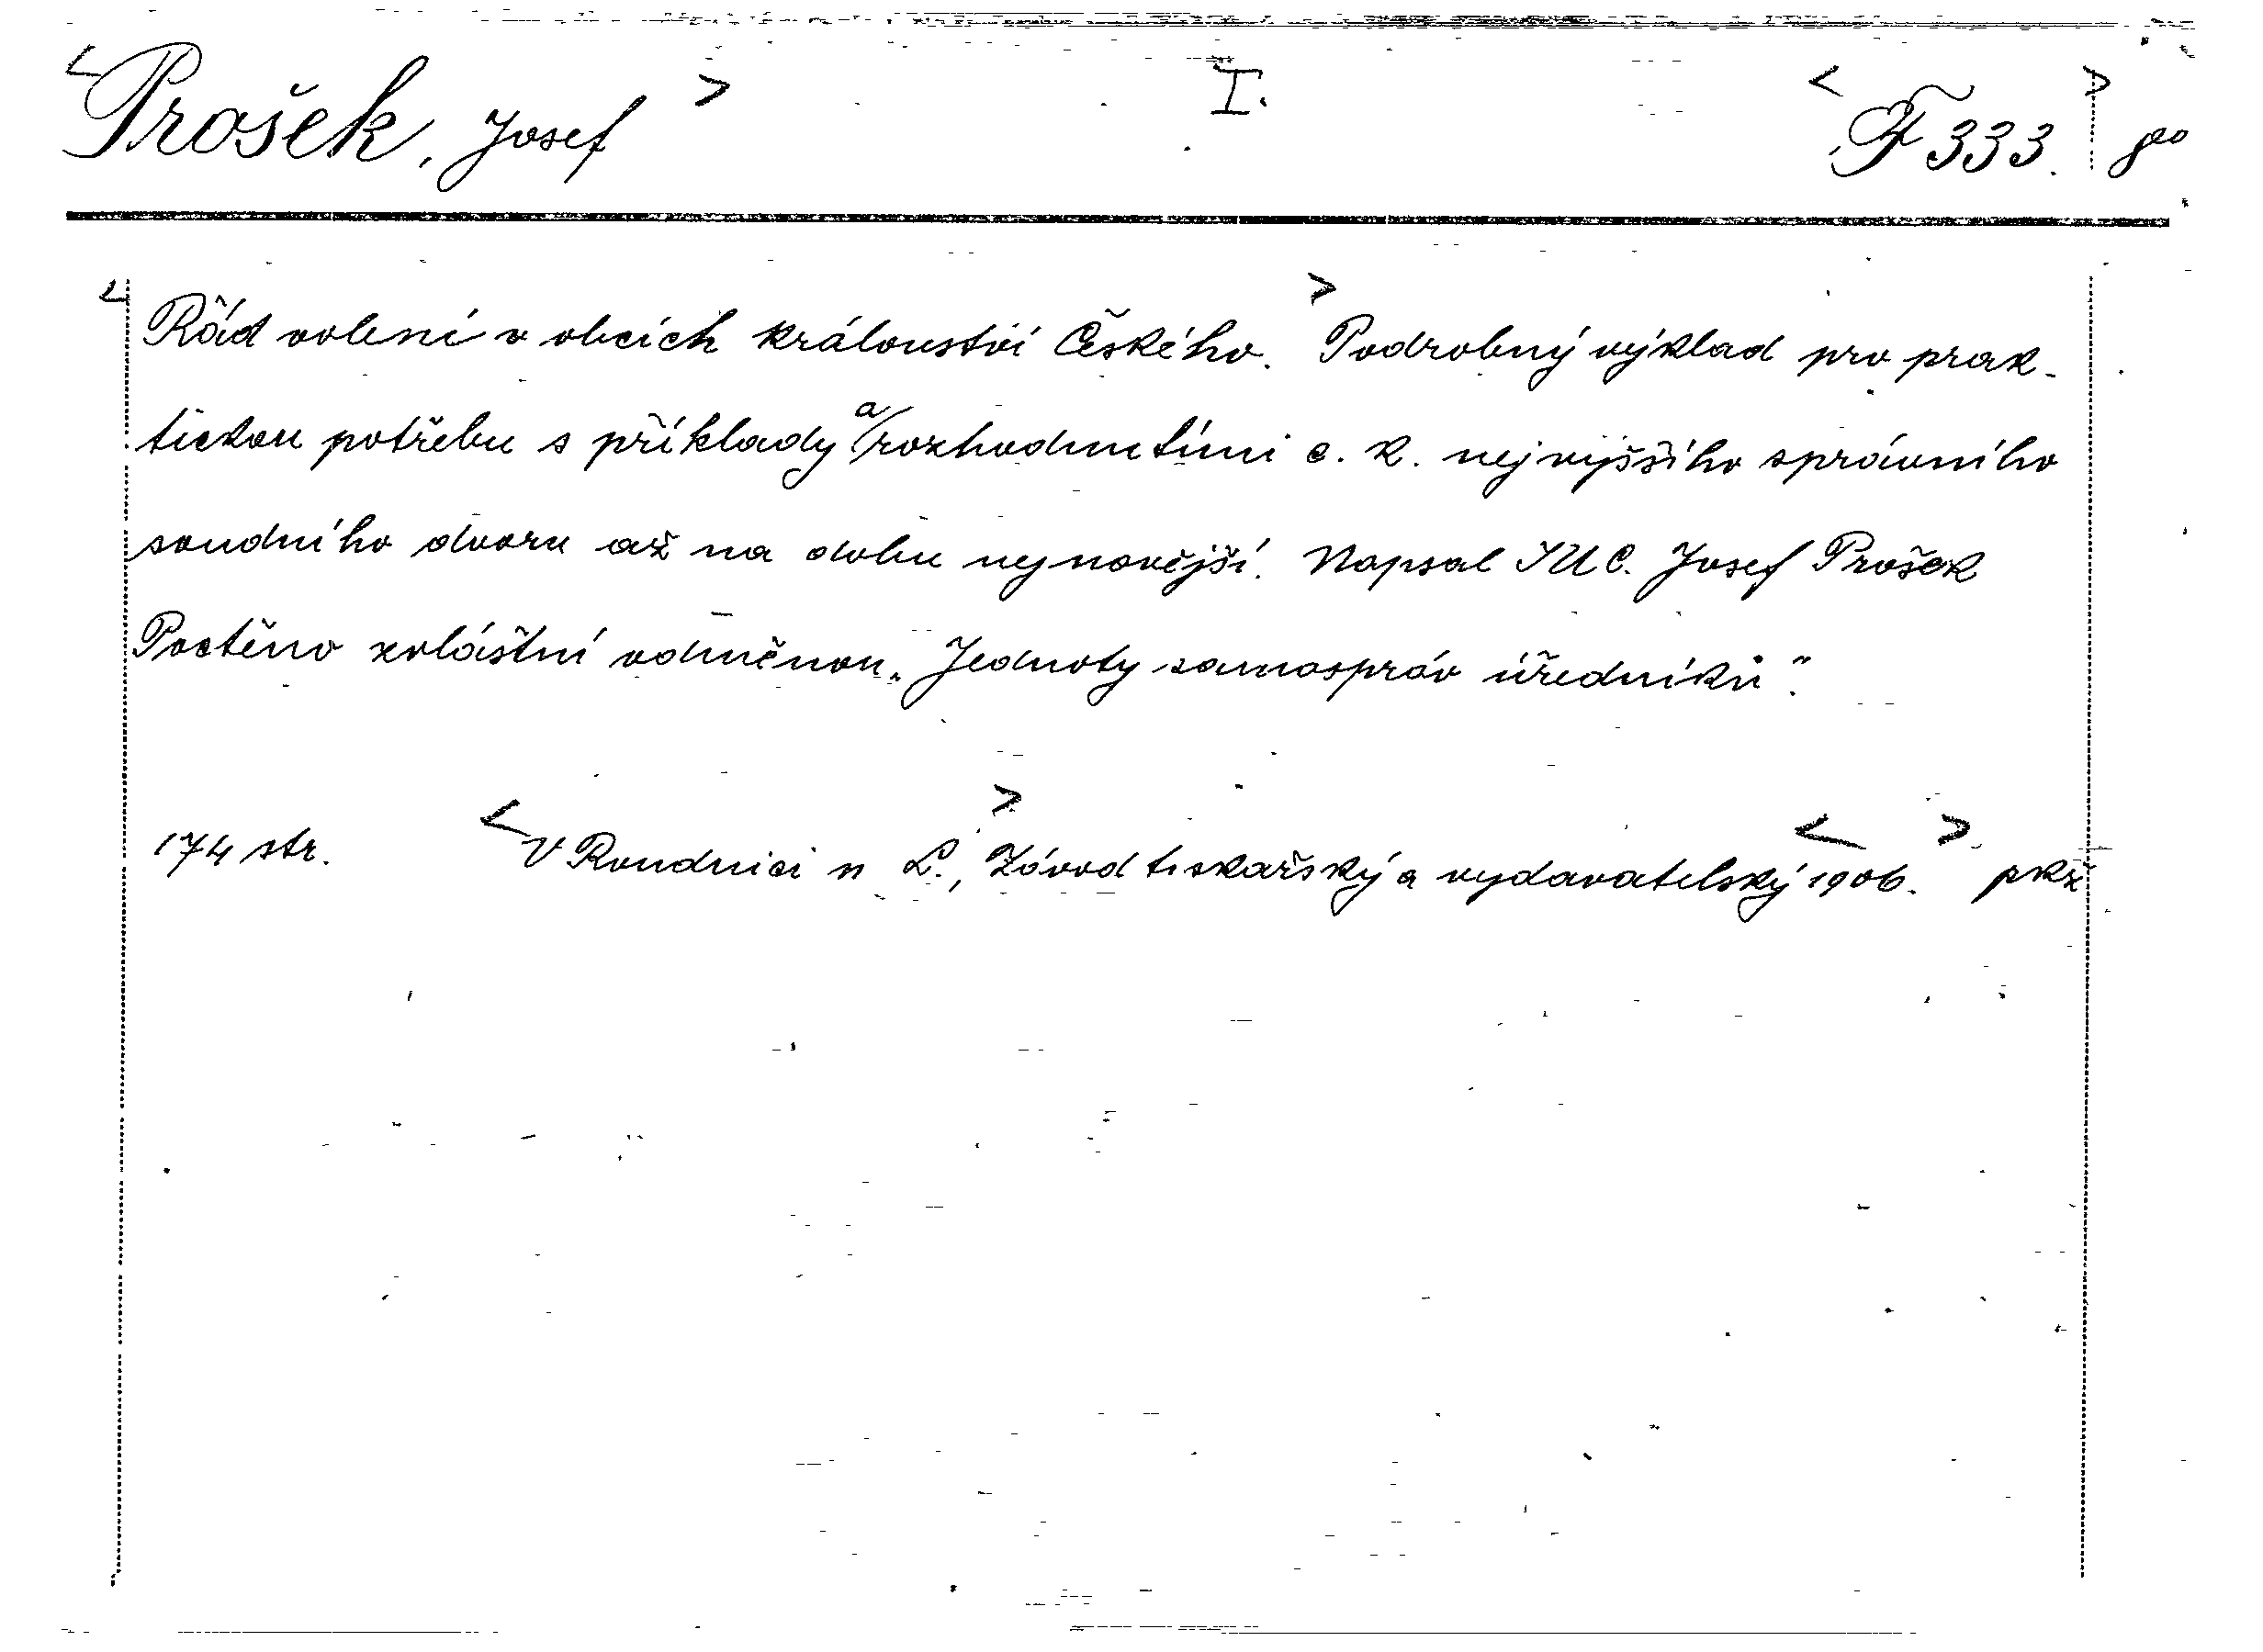 <Prošek, Josef> I. <F 333.> 8°
<Řád volení v obcích království Českého.> Podrobný výklad pro prak-
tickou potřebu s příklady a rozhodnutími c. k. nejvyššího správního
soudního dvoru až na dobu nejnovější. Napsal JUC. Josef Prošek
Poctěno zvláštní odměnou „Jednoty samospráv úředníků".
174 str. <V Roudnici n L.,> Závod tiskařský a vydavatelský <1906.> pkž